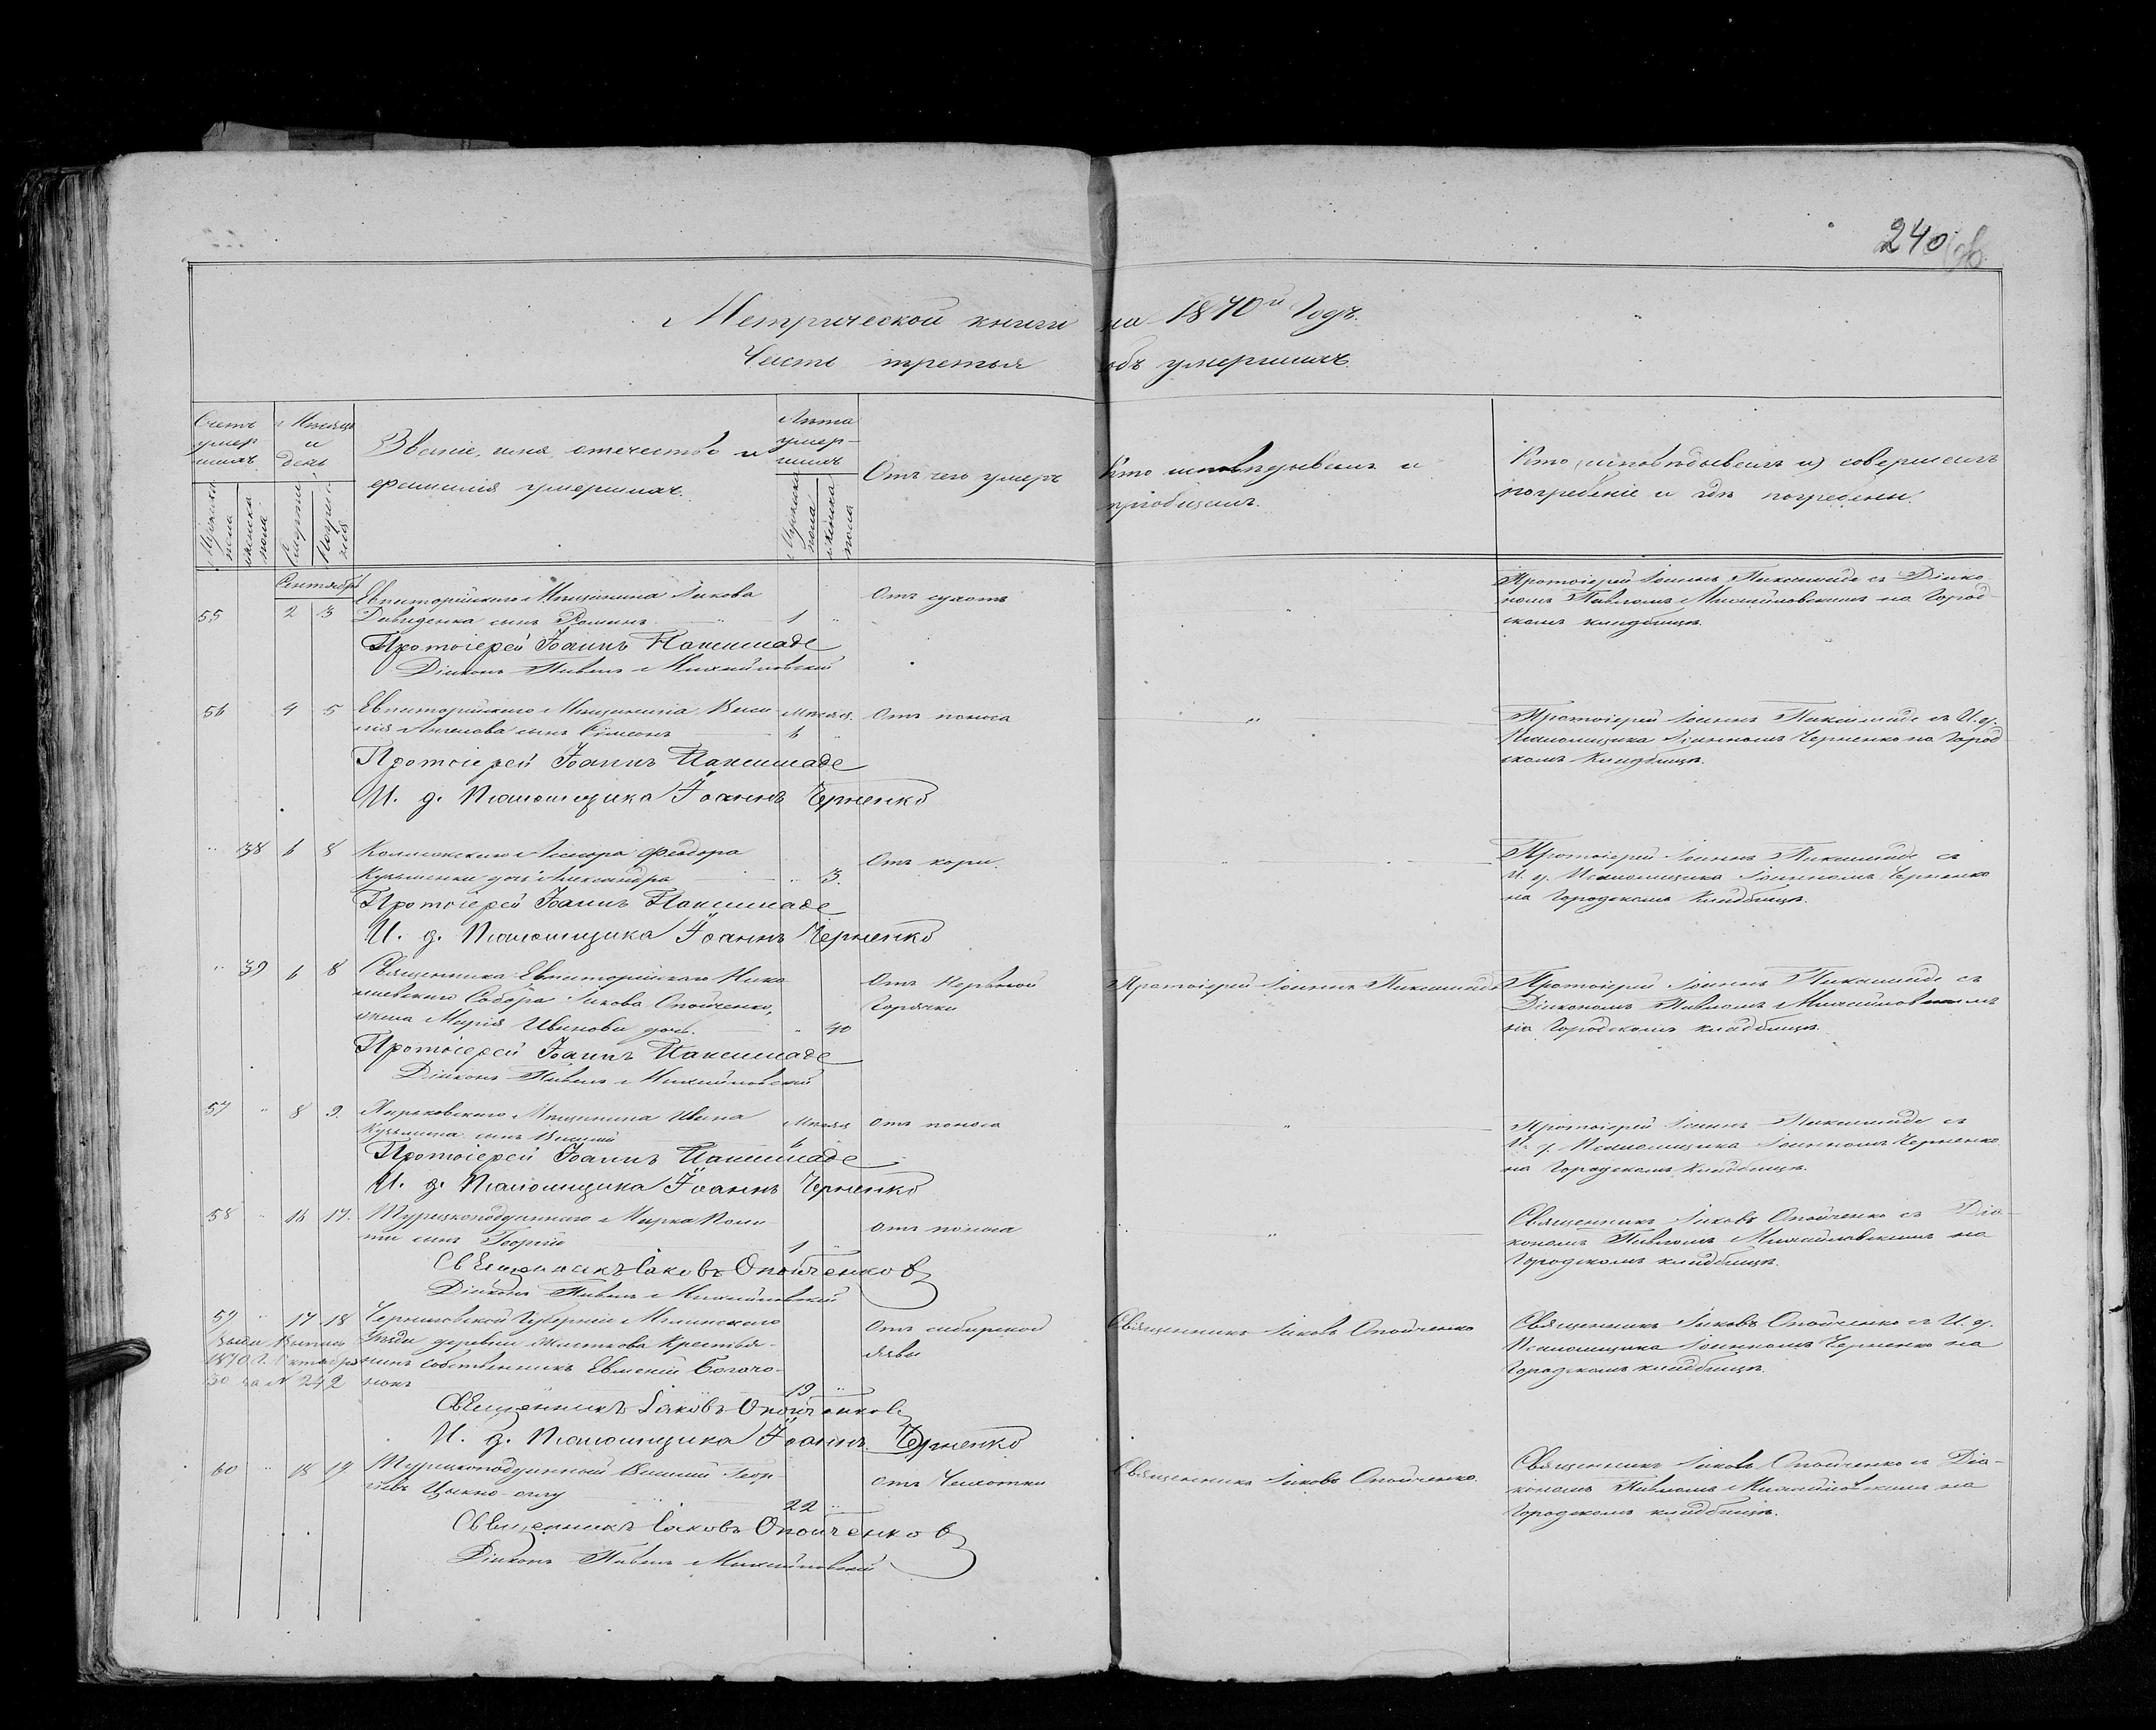 240
Метрической книги на 1870й Годъ.
Часть третья объ умершихъ.
Счетъ умершихъ
Мѣсяцъ и день
Званіе, имя, отечество и фамилія умершихъ.
Лѣта умершихъ
Отъ чего умеръ
Кто исповѣдывалъ и пріобщалъ.
Кто (исповѣдывалъ и) совершалъ погребеніе и гдѣ погребены.
Мужеска пола
женска пола
Смерти
Погребенія
Мужска пола
Женска пола
Сентябрь
55 2 3
Евпаторійскаго Мѣщанина Якова
сынъ 1
Протоіерей Іоаннъ
Діаконъ Павелъ Михайловскій
Протоіерей Іоаннъ съ Діако-
номъ Павломъ Михайловскимъ на Город-
скомъ кладбищѣ.
56 4 5
Евпаторійскаго Мѣщанина Васи-
лія Ангелова сынъ Симеонъ
Мѣсяц. 6
Отъ поноса
Протоіерей Іоаннъ
И. д. Псаломщика Іоаннъ Черненко
Протоіерей Іоаннъ съ И. д.
Псаломщика Іоанномъ Черненко на Город-
скомъ Кладбищѣ.
38 6 8
Феодора
Кузьменки дочь Александра 3.
Отъ кори.
Протоіерей Іоаннъ
И. д. Псаломщика Іоаннъ Черненко
Протоіерей Іоаннъ съ
И. д. Псаломщика Іоанномъ Черненко
на Городскомъ Кладбищѣ.
39 6 8
Священника Евпаторійскаго Нико-
лаевскаго Собора Іакова Опойченко,
жена Марія Иванова дочь. 40
Отъ Нервной
Горячки
Протоіерей Іоаннъ
Протоіерей Іоаннъ
Діаконъ Павелъ Михайловскій
Протоіерей Іоаннъ съ
Діакономъ Павломъ Михайловскимъ
на Городскомъ кладбищѣ.
57 8 9.
Харьковскаго Мѣщанина Ивана
Кузьмина сынъ Василій
Мѣсяц 6
Отъ поноса
Протоіерей Іоаннъ
И. д. Псаломщика Іоаннъ Черненко
Протоіерей Іоаннъ съ
И. д. Псаломщика Іоанномъ Черненко
на Городскомъ Кладбищѣ.
58 16 17.
Турецкоподданнаго Марка
сынъ Георгій 1
Отъ поноса
Священникъ Іаковъ Опойченковъ
Діаконъ Павелъ Михайловскій
Священникъ Іаковъ Опойченко съ Діа-
кономъ Павломъ Михайловскимъ на
Городскомъ кладбищѣ.
59 17 18
1870 г. Октября
30 за № 242
Черниговской Губерніи Мглинскаго
Уѣзда деревни Крестья-
нинъ собственникъ Евменій
19
Отъ сибирской
язвы
Священникъ Іаковъ Опойченко
Священникъ Іаковъ Опойченковъ
И. д. Псаломщика Іоаннъ Черненко
Священникъ Іаковъ Опойченко съ И. д.
Псаломщика Іоанномъ Черненко на
Городскомъ кладбищѣ.
60 18 19
Турецкоподданный Василій Геор-
гіевъ
22
Отъ Чахотки
Священникъ Іаковъ Опойченко.
Священникъ Іаковъ Опойченковъ
Діаконъ Павелъ Михайловскій
Священникъ Іаковъ Опойченко съ Діа-
кономъ Павломъ Михайловскимъ на
Городскомъ кладбищѣ.